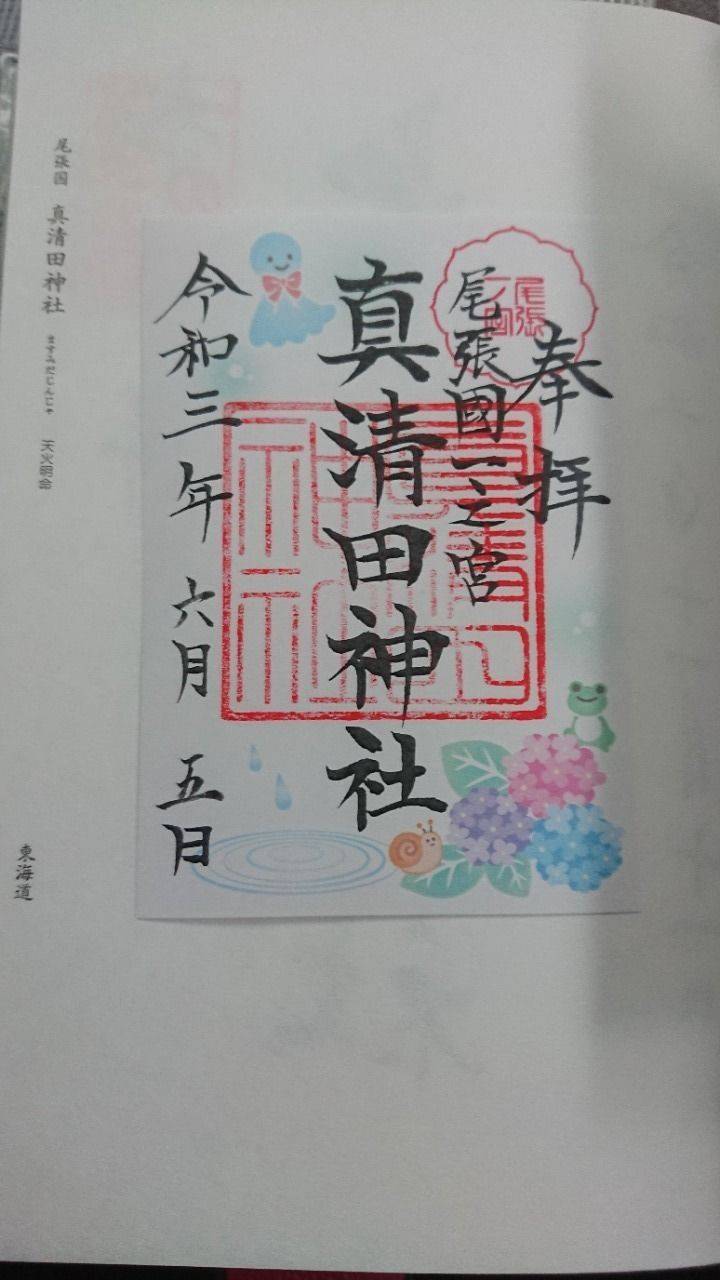 奉拝
尾張
一ノ宮
尾張國一之宮
真清田神社
令和三年 六月 五日
尾張国 真清田神社 ますみだじんじゃ 天火明命
東海道